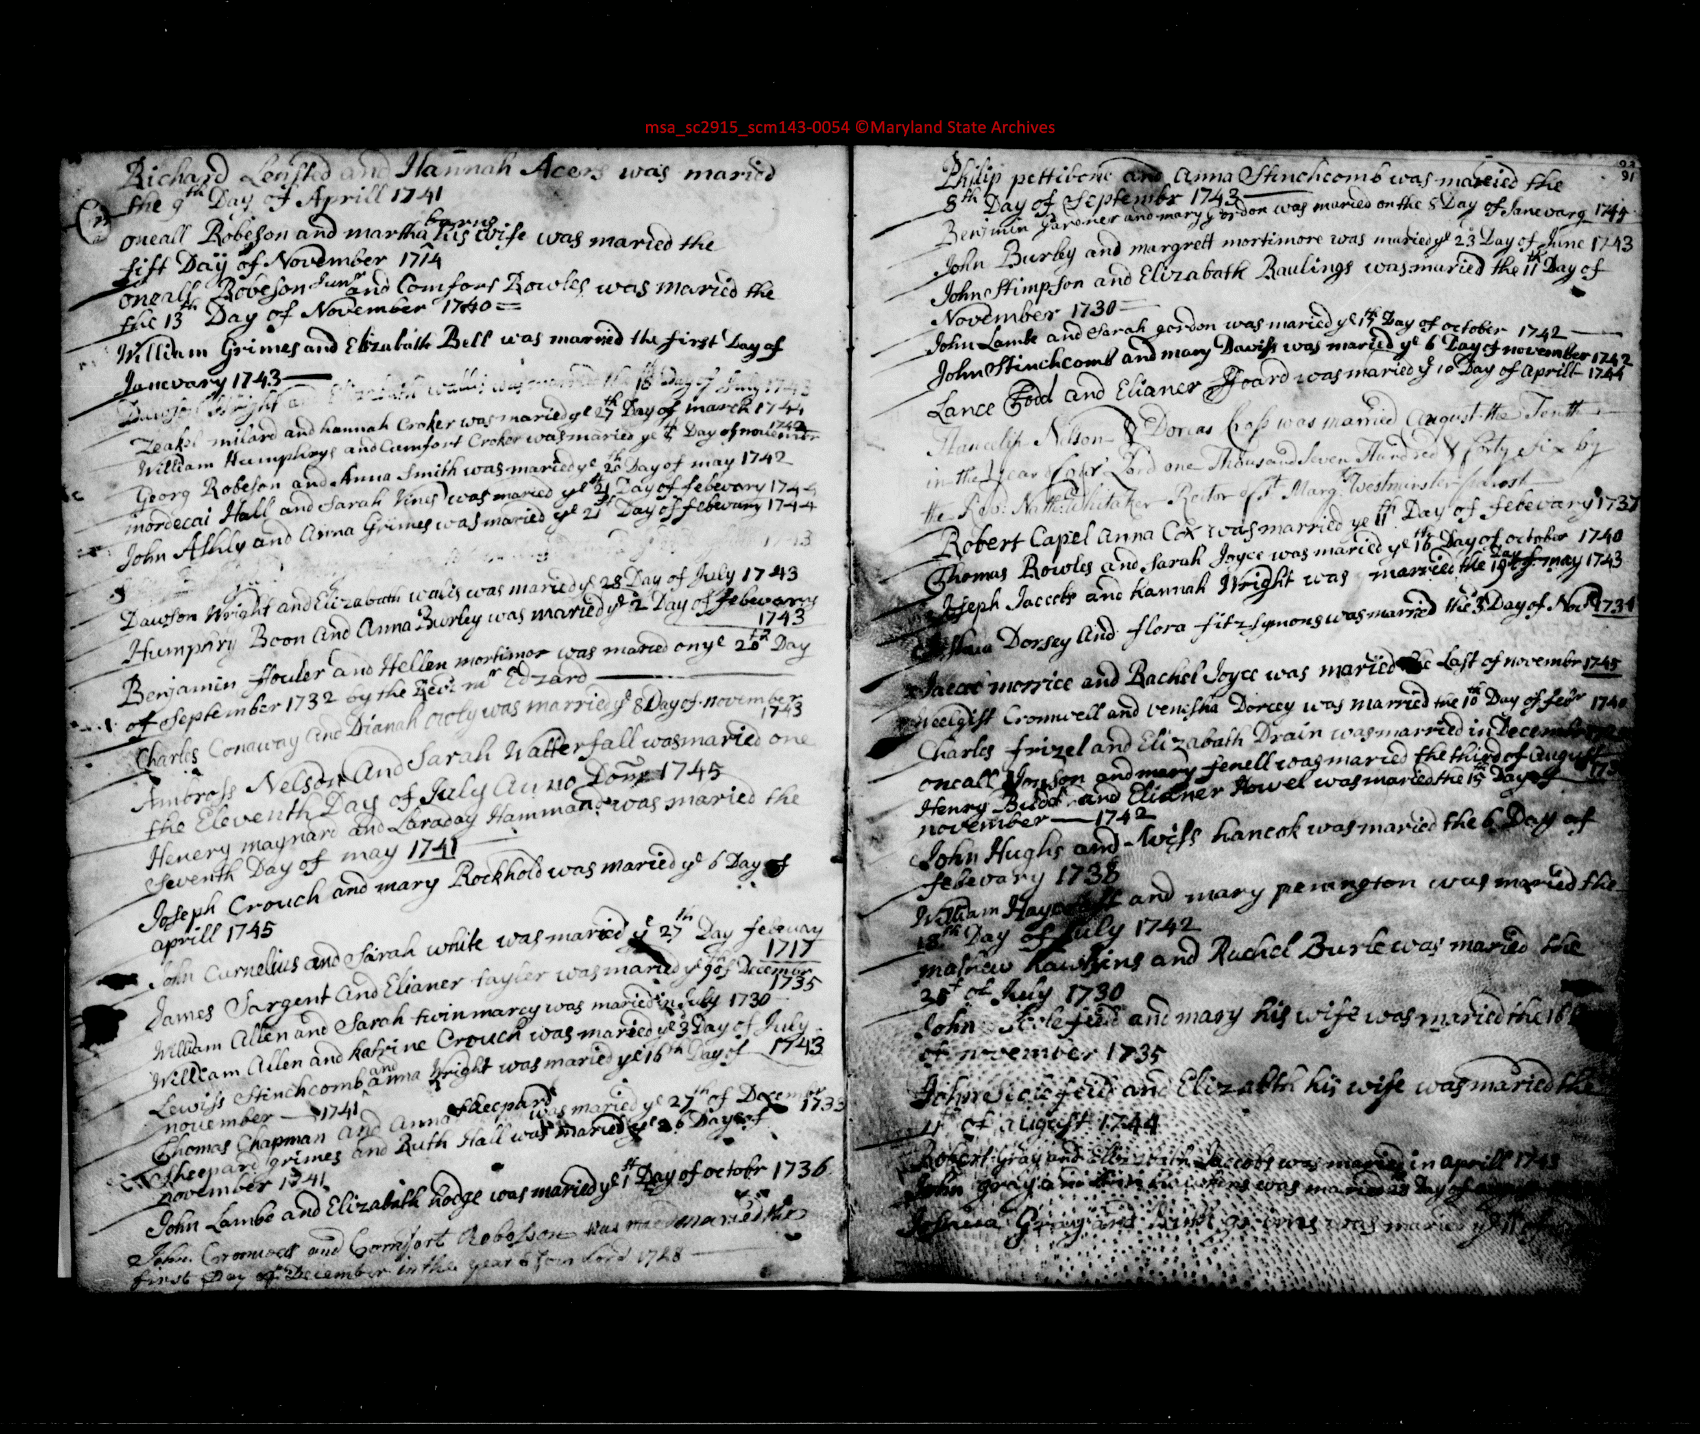 msa_sc2915_scm143-0054 ©Maryland State Archives
Richard and Hannah Acers was maried
the 9th Day of Aprill 1741
oneall Robeson and martha his wife was maried the
fift Day of November 1714
oneall Robeson Junr and Comfort Rowles was maried the
the 13th Day of November 1740
William Grimes and Elizabath Bell was married the first Day of
Janevary 1743
Dawson Wright and Elizabath wallis was married the 18 Day of July 1743
Zeakel milard and hannah Croker was maried ye 27th Day of march 1744
William Humphrys and Cumfort Croker was maried ye Day of november 1742
Georg Robeson and Anna Smith was maried ye 20th Day of may 1742
mordecai Hall and Sarah was maried ye 21 Day of febevary 1744
John Ashly and Anna Grimes was maried ye 21 Day of febevary 1744
1743
Dawson Wright and Elizabath walis was maried ye 28 Day of July 1743
Humphry Boon and Anna Burley was maried ye 2 Day of febevary
1743
Benjamin ffouler and Hellen mortimor was maried on ye 20th Day
of September 1732 by the Revd mr Edzard
Charles Conaway and Dianah owly was married ye 8 Day of november
1743
Ambross Nelson And Sarah Watterfall was maried one
the Eleventh Day of July Anno Dom 1745
Henery maynard and Laraday Hammand was maried the
Seventh Day of may 1741
Joseph Crouch and mary Rockhold was maried ye 6 Day of
aprill 1745
John Curnelius and Sarah white was maried ye 27th Day febeuay
1717
James Sargent And Elianer tayler was maried ye 9 of Decemor
1735
William Allen and Sarah twinmarcy was maried in July 1730
William Allen and katrine Crouch was maried ye 3 Day of July
1743
Lewiss Stinchcomb and anna Wright was maried ye 16th Day of
november 1741
Thomas Chapman and Anna Sheepard was maried ye 27th of Decemr 1733
Sheepard grimes and Ruth Hall was maried ye 26 Day of
november 1741
John Lambe and Elizabath hodge was maried ye 1st Day of octobr 1736
John Cromwell and Comfort Robosson was married the
first Day of December in the year of our Lord 1748
Philip pettibone and Anna Stinchcomb was maried the
8th Day of Septembr 1743
Benjmin Gardner and mary Gordon was maried on the 8 Day of Janevary 1744
John Burley and margrett mortimore was maried ye 23 Day of June 1743
John Stimpson and Elizabath Raulings was maried the 11th Day of
November 1730
John Lambe and Sarah gordon was maried ye 17th Day of october 1742
John Stinchcomb and mary Daviss was maried ye 6 Day of november 1742
Lance Todd and Elianer Gard was maried ye 10 Day of aprill 1744
Nelson & Dorcas Cross was married August the Tenth
in the Year of our Lord one Thousand Seven Hundred & forty Six by
the Revd Nathl Whitaker Rector of St Margts Westminster
Robert Capel Anna Cox was married ye 11th Day of febevary 1737
Thomas Rowles and Sarah Joyce was maried ye 16th Day of october 1740
Joseph Jaccobs and hannah Wright was married the 19th Day of may 1743
Dorsey And flora fitzsymons was married the 3 Day of Novr 1734
Jacob morrice and Rachel Joyce was maried the Last of novembr 1745
neelgist Cromwell and venisha Dorcey was married the 10th Day of febr 1740
Charles frizel and Elizabath Drain was married in December
oneall and mary fenell was maried the third of august
Henry and Elianer Howel was maried the 15 Day of
november 1742
John Hughs and hancok was maried the 6 Day of
febevary 1738
William and mary penington was maried the
18th Day of July 1742
mathew hawkins and Rachel Burle was maried the
of July 1730
John and mary his wife was maried the 16
of november 1735
John and Elizabth his wife was maried the
of august 1744
Robert Gray and Elizabath Jaccobs was maried in aprill 1743
John gray and was maried Day of
Joshua Gray and was maried ye